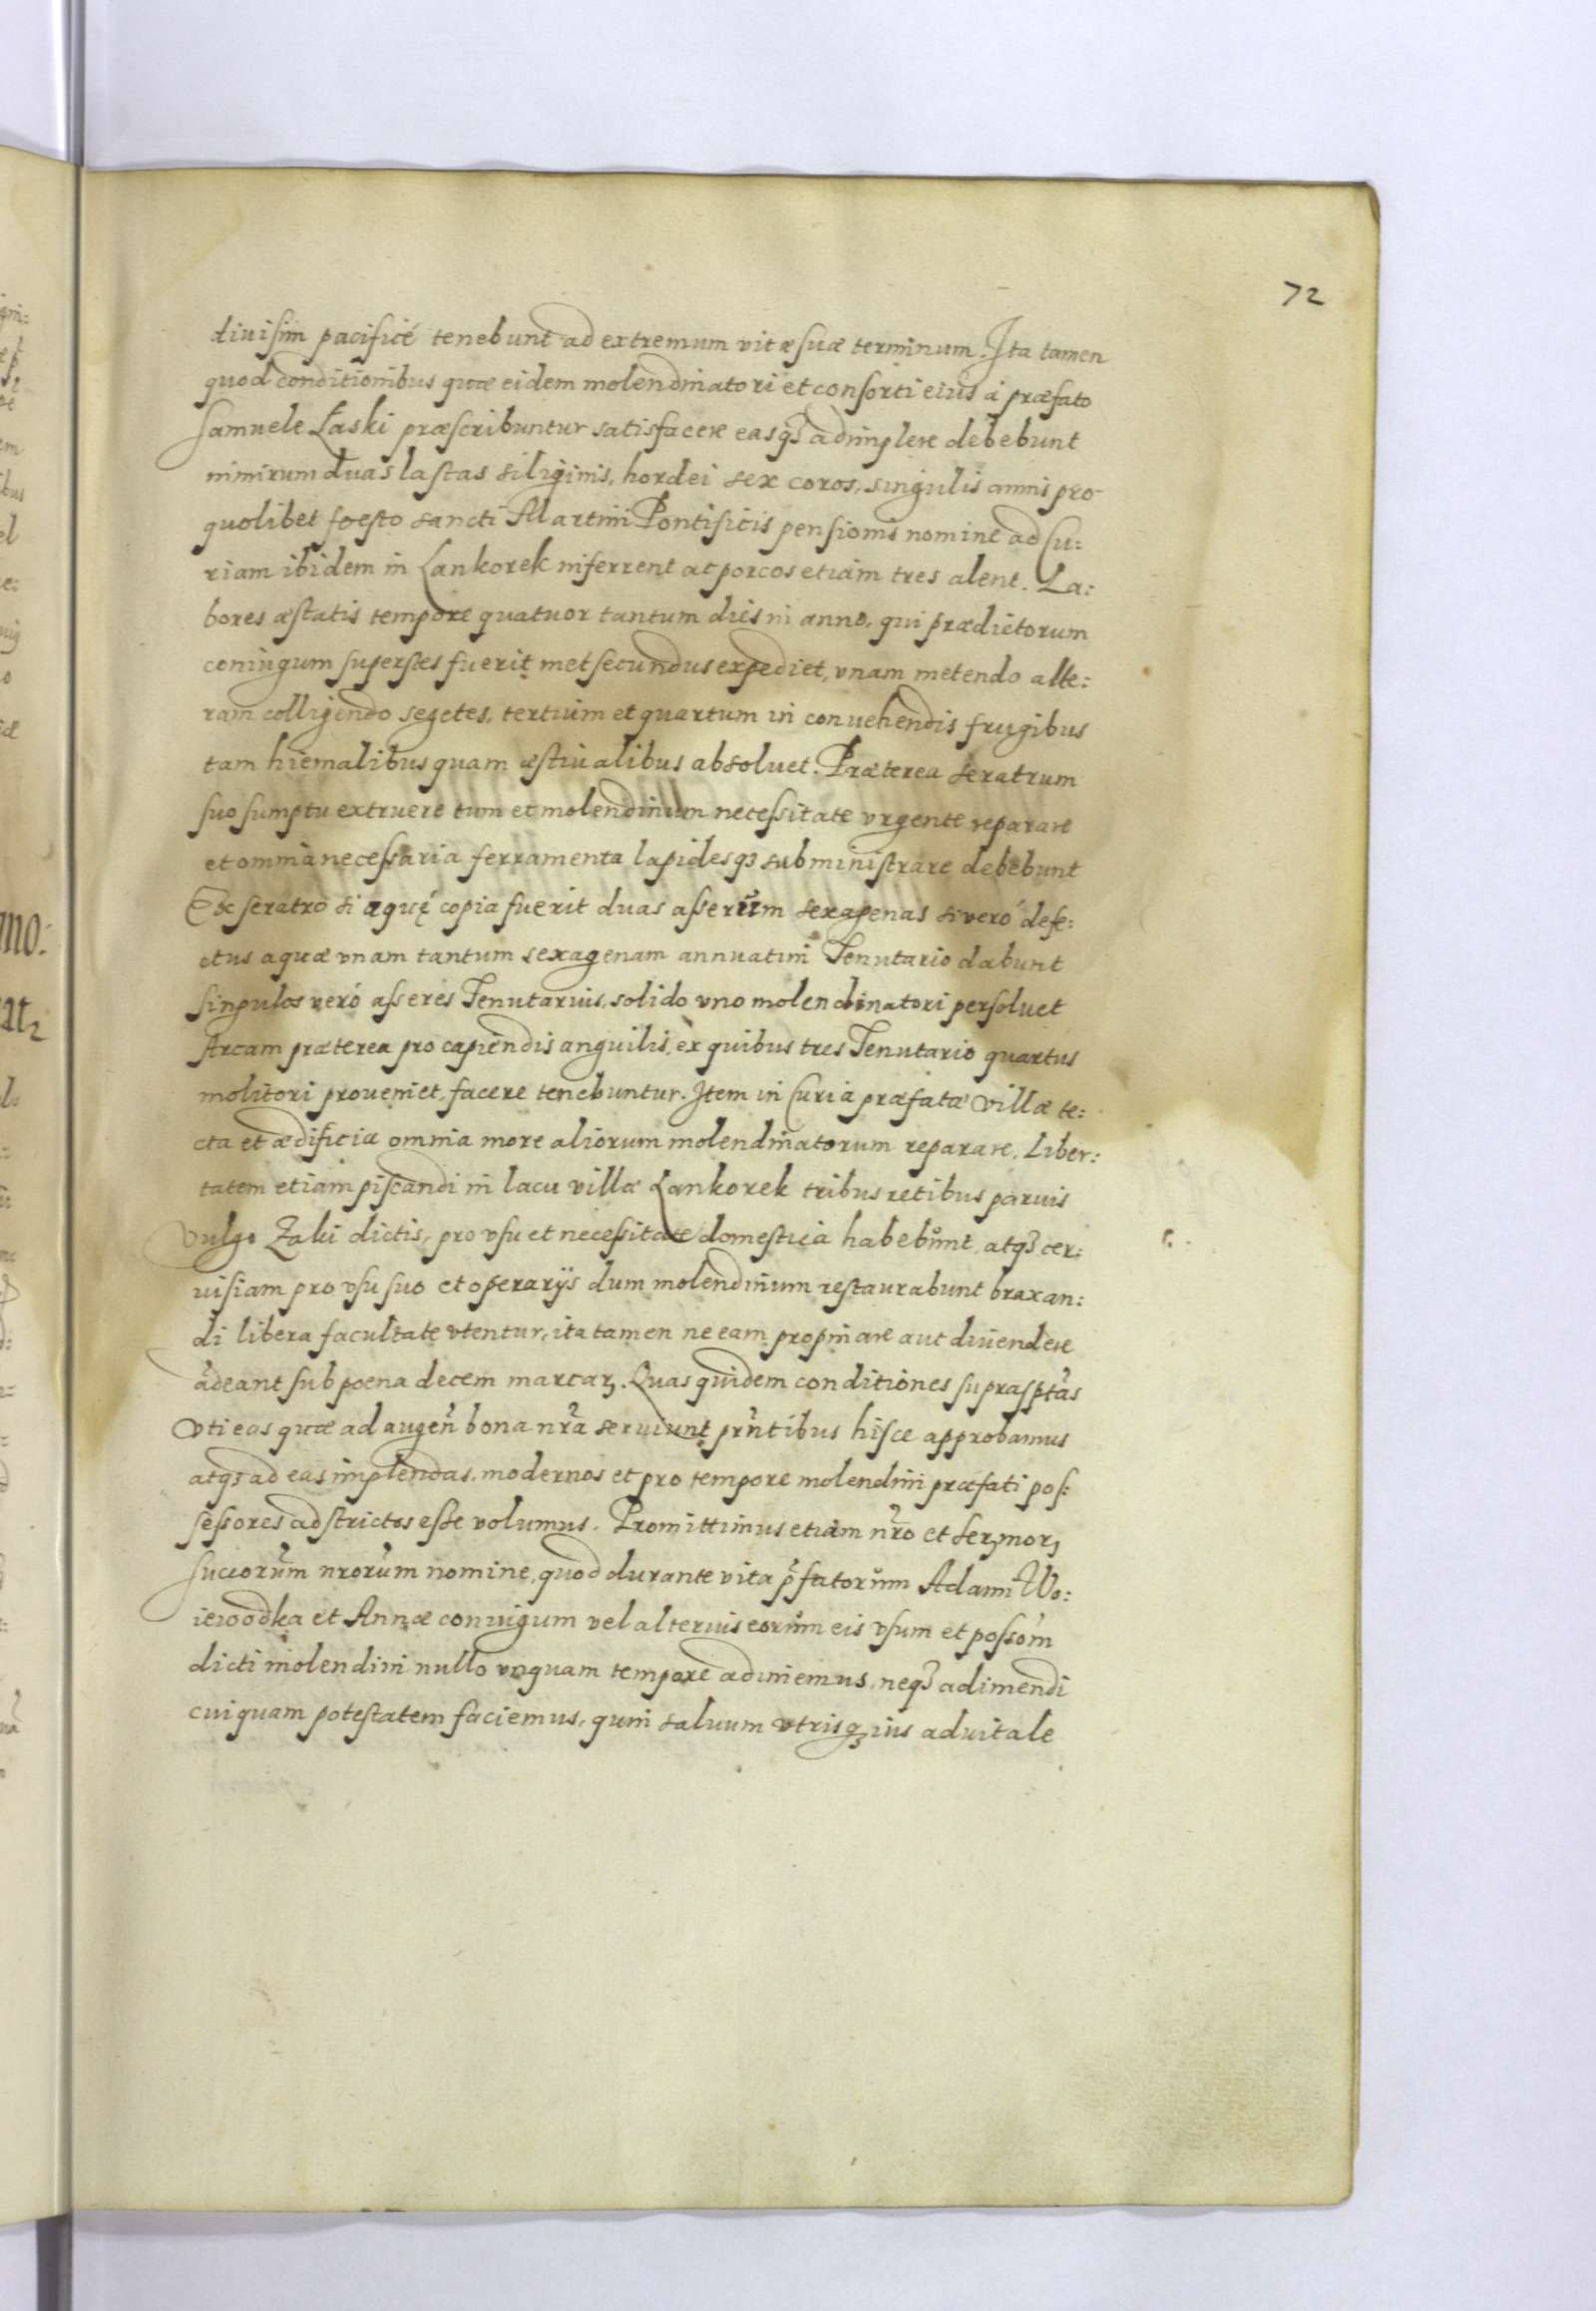 72
diuisim pacificé tenebunt ad extremum vitæ suæ terminum. Ita tamen
quod conditionibus quæ eidem molendinatori et consorti eius á præfato
Samuele Łaski præscribuntur satisfacere easq3 adimplere debebunt
nimirum duas lastas siliginis, hordei sex coros, singulis annis pro
quolibet foesto sancti Martini Pontificis pensionis nomine ad Cu:
riam ibidem in Lankorek inferrent ac porcos etiam tres alent. La:
bores æstatis tempore quatuor tantum dies in anno, qui prædictorum
coniugum superstes fuerit metsecundus expediet, vnam metendo alte:
ram colligendo segetes, tertium et quartum in conuehendis frugibus
tam hiemalibus quam æstiualibus absoluet. Præterea seratrum
suo sumptu extruere tum et molendinum necessitate vrgente reparare
et omnia necessaria ferramenta lapidesq3 subministrare debebunt
Ex seratro si aquę copia fuerit duas asserum sexagenas si veró defe:
ctus aquæ vnam tantum sexagenam annuatim Tenutario dabunt
singulos veró asseres Tenutarius, solido vno molendinatori persoluet
Arcam præterea pro capiendis anguilis, ex quibus tres Tenutario quartus
molitori proueniet, facere tenebuntur. Item in Curia præfatæ villæ te:
cta et ædificia omnia more aliorum molendinatorum reparare. Liber:
tatem etiam piscandi in lacu villæ Lankorek tribus retibus paruis
vulgo Zaki dictis, pro vsu et necessitate domestica habebunt, atq3 cer:
uisiam pro vsu suo et operarijs dum molendinum restaurabunt braxan:
di libera facultate vtentur, ita tamen ne eam propinare aut diuendere
adeant sub poena decem marcar3. Quas quidem conditiones suprasptas
vti eas quæ ad augen bona nra seruiunt prntibus hisce approbamus
atq3 ad eas implendas, modernos et pro tempore molendini præfati pos:
sessores adstrictos esse volumus. Promittimus etiam nro et Ser3mor3
succorum nrorum nomine, quod durante vita pfatorum Adami Wo:
iewodka et Annæ coniugum vel alterius eorum eis vsum et possom
dicti molendini nullo vnquam tempore adimemus, neq3 adimendi
cuiquam potestatem faciemus, quin saluum vtrisq3 ius aduitale